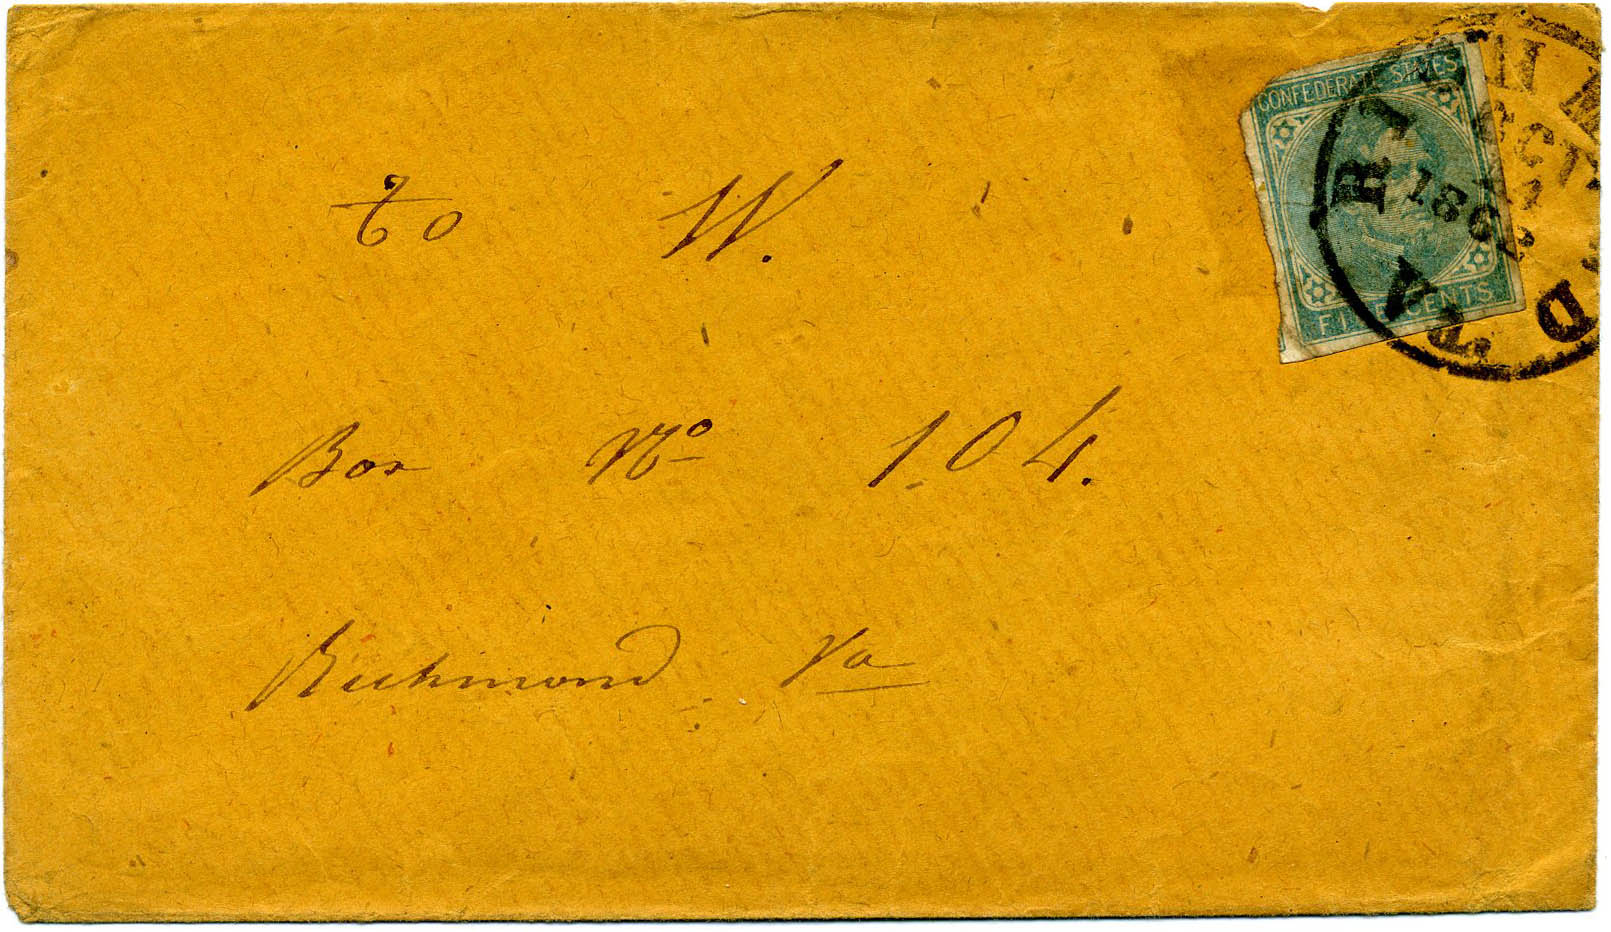 CONFEDERATE STATES
FIVE CENTS
RICHMOND VA.
OCT
186
To W.
Box No 104.
Richmond Va